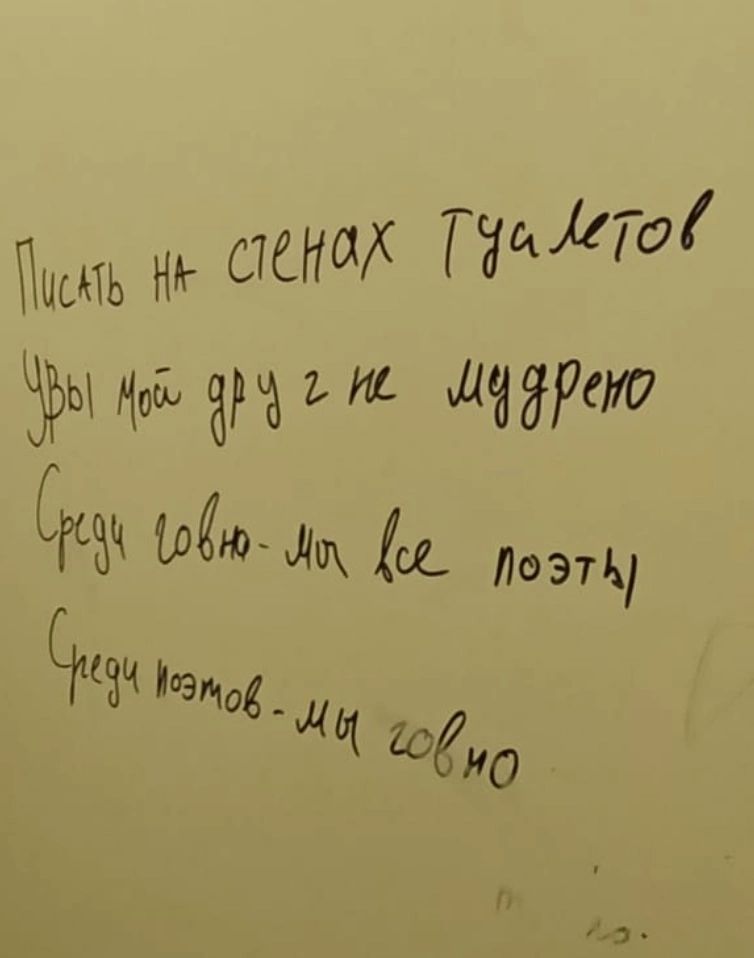 Писать на стенах туалетов
Увы мой друг не мудрено
Среди говна - мы все поэты
Среди поэтов - мы говно